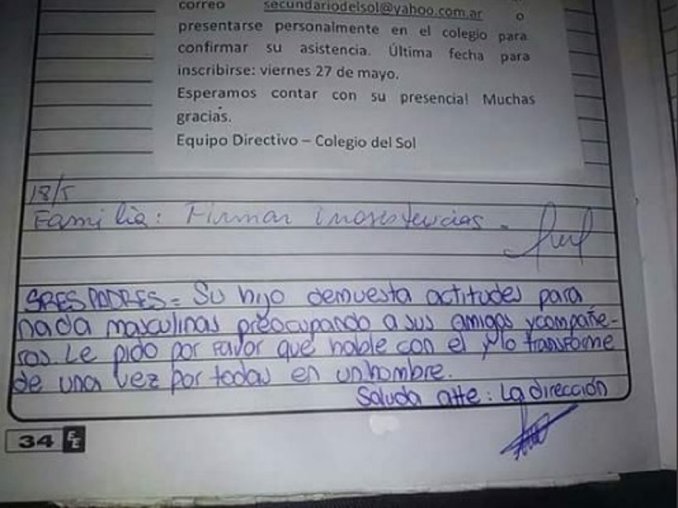 correo secundariodelsol@yahoo.com.ar o
presentarse personalmente en el colegio para
confirmar su asistencia. Última fecha para
inscribirse: viernes 27 de mayo.
Esperamos contar con su presencia! Muchas
gracias.
Equipo Directivo – Colegio del Sol
18/5
Familia: Firmar inasistencias.
SRES PADRES = Su hijo demuesta actitudes para
nada masculinas preocupando a sus amigos y compañe-
ros. Le pido por favor que hable con el y lo transforme
de una vez por todas en un hombre.
Saluda atte: La dirección
34